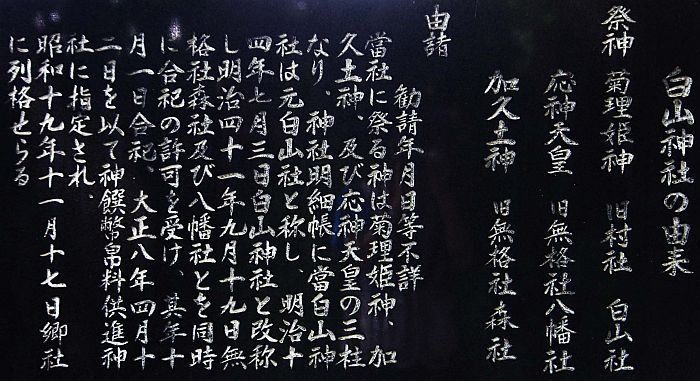 白山神社の由来
祭神　菊理姫神　旧村社　白山社
応神天皇　旧無格社八幡社
加久土神　旧無格社森社
由諸
勧請年月日等不詳
當社に祭る神は菊理姫神、加
久土神、及び応神天皇の三柱
なり、神社明細帳に當白山神
社は元白山社と称し、明治十
四年七月三日白山神社と改称
し明治四十一年九月十九日無
格社森社及び八幡社とを同時
に合祀の許可を受け、其年十
月一日合祀、大正八年四月十
二日を以て神饌幣帛料供進神
社に指定され、
昭和十九年十一月十七日郷社
に列格せらる